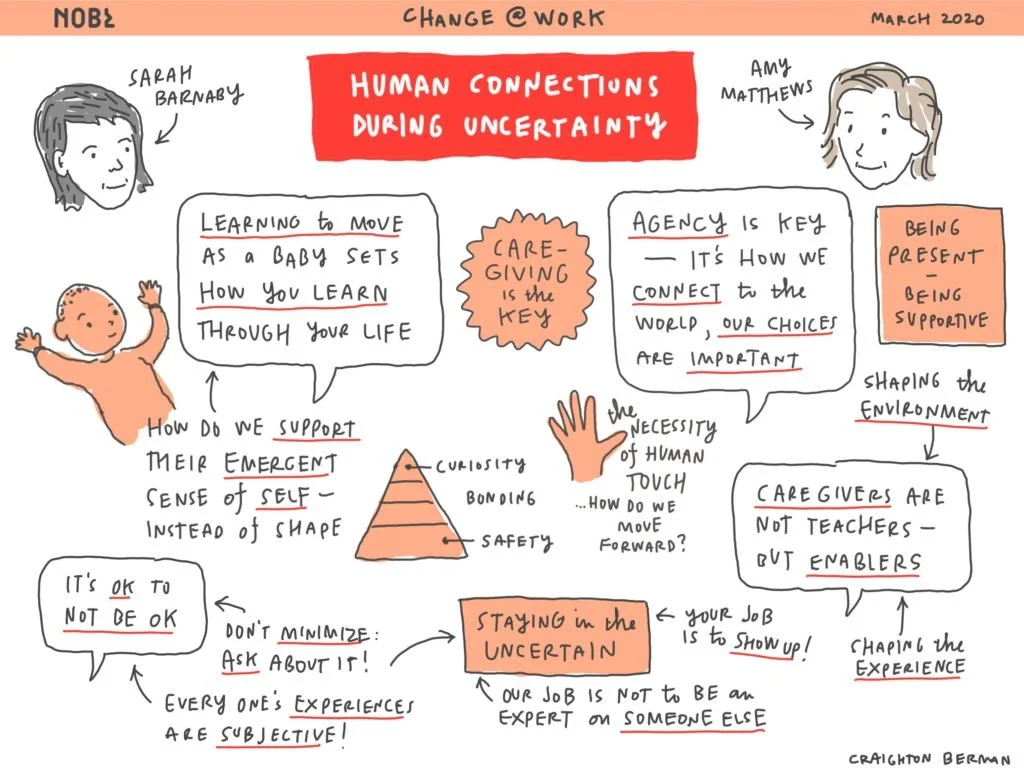 NOBL
CHANGE @ WORK
MARCH 2020
SARAH
BARNABY
HUMAN CONNECTIONS
DURING UNCERTAINTY
AMY
MATTHEWS
LEARNING to MOVE
AS a BABY SETS
HOW YOU LEARN
THROUGH YOUR LIFE
CARE-
GIVING
is the
KEY
AGENCY IS KEY
— IT'S HOW WE
CONNECT to the
WORLD, OUR CHOICES
ARE IMPORTANT
BEING
PRESENT
—
BEING
SUPPORTIVE
HOW DO WE SUPPORT
THEIR EMERGENT
SENSE of SELF —
INSTEAD of SHAPE
CURIOSITY
BONDING
SAFETY
the
NECESSITY
of HUMAN
TOUCH
...HOW DO WE
MOVE
FORWARD?
SHAPING the
ENVIRONMENT
CAREGIVERS ARE
NOT TEACHERS —
BUT ENABLERS
SHAPING the
EXPERIENCE
IT'S OK TO
NOT BE OK
DON'T MINIMIZE:
ASK ABOUT IT!
EVERY ONE'S EXPERIENCES
ARE SUBJECTIVE!
STAYING in the
UNCERTAIN
YOUR JOB
IS to SHOW UP!
OUR JOB IS NOT to BE an
EXPERT on SOMEONE ELSE
CRAIGHTON BERMAN